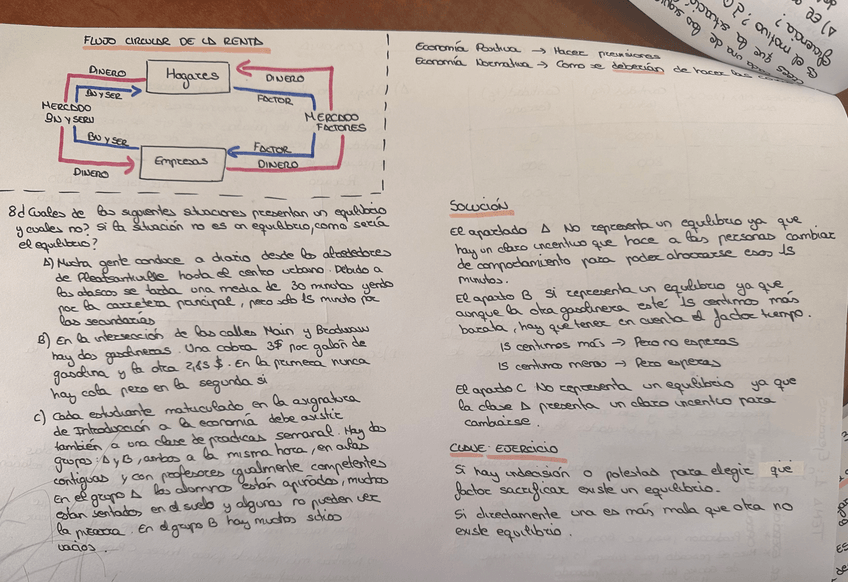 FLUJO CIRCULAR DE LA RENTA
DINERO
Hogares
DINERO
BN Y SER
FACTOR
MERCADO
BN Y SERV
MERCADO
FACTORES
BN Y SER
FACTOR
Empresas
DINERO
DINERO
8d Cuales de las siguientes situaciones presentan un equilibrio
y cuales no? Si la situación no es en equilibrio, como sería
el equilibrio?
A) Mucha gente conduce a diario desde los alrededores
de Pleatsantville hasta el centro urbano. Debido a
los atascos se tarda una media de 30 minutos yendo
por la carretera principal, pero solo 15 minuto por
las secundarias
B) En la intersección de las calles Main y Broduraw
hay dos gasolineras. Una cobra 3$ por galón de
gasolina y la otra 2,85 $. En la primera nunca
hay cola pero en la segunda si
C) Cada estudiante matriculado en la asignatura
de Introducción a la economía debe asistir
también a una clase de practicas semanal. Hay dos
grupos: A y B, ambos a la misma hora, en aulas
contiguas y con profesores igualmente competentes
En el grupo A los alumnos están apiñados, muchos
estan sentados en el suelo y algunos no pueden ver
la pizarra. En el grupo B hay muchos sitios
vacios.
Economía Positiva → Hacer previsiones
Economía Normativa → Como se deberían de hacer las
SOLUCIÓN
El apartado A No representa un equilibrio ya que
hay un claro incentivo que hace a las personas cambiar
de comportamiento para poder ahorrarse esos 15
minutos.
El apartado B Si representa un equilibrio ya que
aunque la otra gasolinera esté 15 centimos más
barata, hay que tener en cuenta el factor tiempo.
15 centimos más → Pero no esperas
15 centimos menos → Pero esperas
El apartado C No representa un equilibrio ya que
la clase A presenta un claro incentivo para
cambiarse.
CLAVE EJERCICIO
Si hay indecisión o potestad para elegir que
factor sacrificar existe un equilibrio.
Si directamente una es más mala que otra no
existe equilibrio.